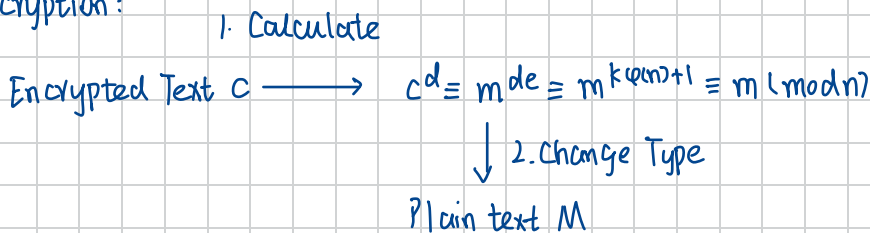 cryption:
1. Calculate
Encrypted Text C ⟶ c^d ≡ m^{de} ≡ m^{kφ(n)+1} ≡ m (mod n)
↓ 2. Change Type
Plain text M